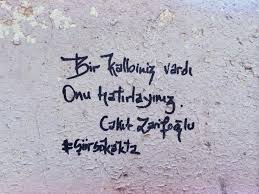 Bir Kalbiniz vardı
Onu Hatırlayınız.
Cahit Zarifoğlu
#şiirsokakta